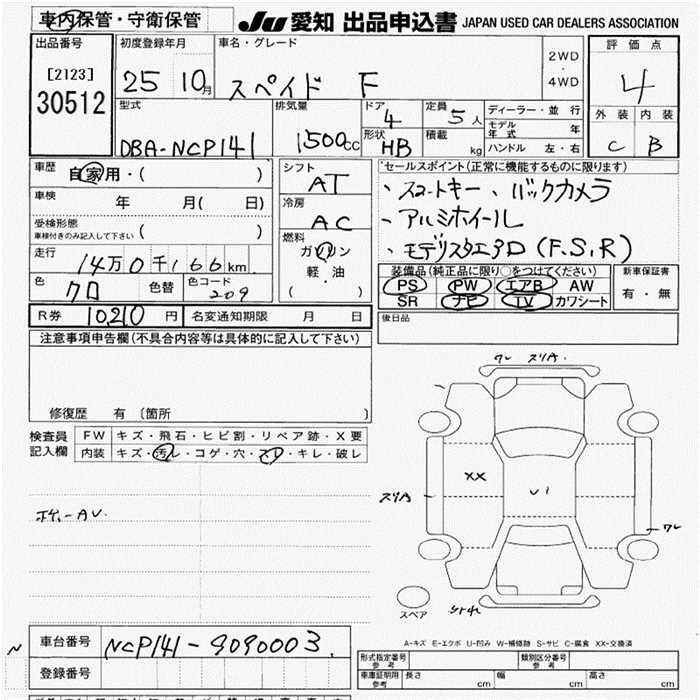 車内保管・守衛保管
JU 愛知 出品申込書 JAPAN USED CAR DEALERS ASSOCIATION
出品番号
[2123]
30512
初度登録年月
25 10月
車名・グレード
スペイド F
2WD
・
4WD
評価点
4
外装 内装
C B
型式
DBA-NCP141
排気量
1500cc
ドア
4
形状
HB
定員
5人
積載
kg
ディーラー・並行
モデル年式 年
ハンドル 左・右
車歴
自家用・( )
車検
年 月( 日)
受検形態
車検付きのみ記入して下さい ( )
走行
14万0千166km
色
クロ
色替
色コード
209
シフト
AT
冷房
AC
燃料
ガソリン
軽・油
( )
セールスポイント(正常に機能するものに限ります)
、スマートキー、バックカメラ
、アルミホイール
、モデリスタエアロ(F,S,R)
装備品(純正品に限り○をつけてください)
PS PW エアB AW
SR ナビ TV カワシート
新車保証書
有・無
R券 10210円
名変通知期限 月 日
後日品
注意事項申告欄(不具合内容等は具体的に記入して下さい)
修復歴 有 〔箇所 〕
検査員記入欄
FW キズ・飛石・ヒビ割・リペア跡・X要
内装 キズ・汚レ・コゲ・穴・スレ・キレ・破レ
ワレ スリA.
XX
U1
スリA
ワレ
スペア
A-キズ E-エクボ U-凹み W-補修跡 S-サビ C-腐食 XX-交換済
車台番号 NCP141-9090003.
登録番号
形式指定番号
参考
類別区分番号
参考
車庫証明用
参考
長さ cm
幅 cm
高さ cm